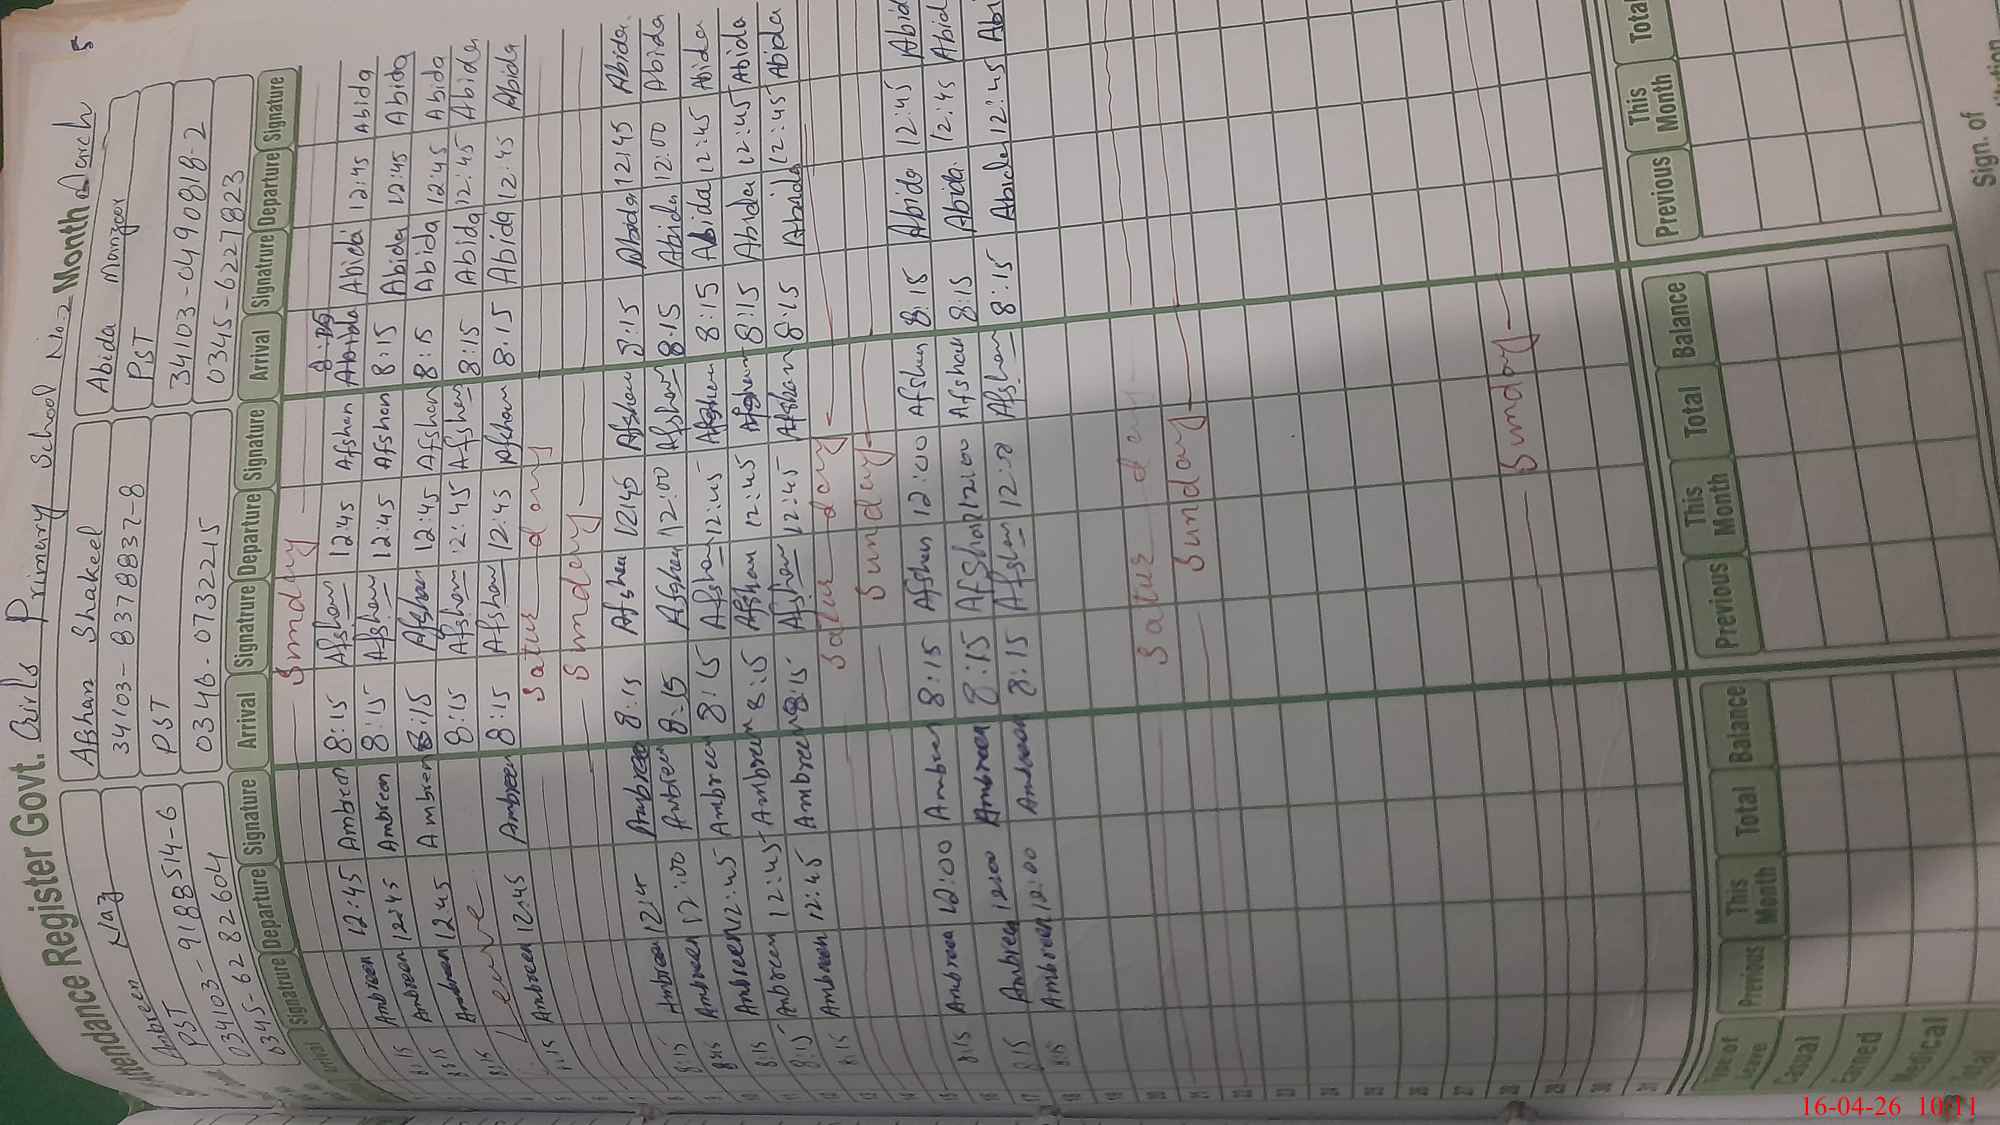 Attendance Register Govt. Girls Primary School No-2 Month March 5
Ambreen Naz Afshan Shakeel Abida Manzoor
PST 34103-8378837-8 PST
034103-9188514-6 PST 34103-0490818-2
0345-6282604 0346-0732215 0345-6227823
Arrival Signatrure Departure Signature Arrival Signatrure Departure Signature Arrival Signatrure Departure Signature
Sunday
8:15 Ambreen 12:45 Ambreen 8:15 Afshan 12:45 Afshan Abida Abida 12:45 Abida
8:15 Ambreen 12:45 Ambreen 8:15 Afshan 12:45 Afshan 8:15 Abida 12:45 Abida
8:15 Ambreen 12:45 Ambreen 8:15 Afshan 12:45 Afshan 8:15 Abida 12:45 Abida
Leave 8:15 Afshan 12:45 Afshan 8:15 Abida 12:45 Abida
8:15 Ambreen 12:45 Ambreen 8:15 Afshan 12:45 Afshan 8:15 Abida 12:45 Abida
Satur day
Sunday
8:15 Ambreen 12:4 Ambreen 8:15 Afshan 12:45 Afshan 8:15 Abida 12:45 Abida
8:15 Ambreen 12:00 Ambreen 8:15 Afshan 12:00 Afshan 8:15 Abida 12:00 Abida
8:15 Ambreen 12:45 Ambreen 8:15 Afshan 12:45 Afshan 8:15 Abida 12:45 Abida
8:15 Ambreen 12:45 Ambreen 8:15 Afshan 12:45 Afshan 8:15 Abida 12:45 Abida
8:15 Ambreen 12:45 Ambreen 8:15 Afshan 12:45 Afshan 8:15 Abida 12:45 Abida
Satur day
Sunday
8:15 Ambreen 12:00 Ambreen 8:15 Afshan 12:00 Afshan 8:15 Abida 12:45 Abid
8:15 Ambreen 12:00 Ambreen 8:15 Afshan 12:00 Afshan 8:15 Abida 12:45 Abid
8:15 Ambreen 12:00 Ambreen 8:15 Afshan 12:0 Afshan 8:15 Abida 12:45 Abi
18
19
20 Satur day
21 Sunday
22
23
24
25
26
27
28 Sunday
29
30
31
Type of Leave Previous This Month Total Balance Previous This Month Total Balance Previous This Month Total
Casual
Earned
Medical
Total
Sign. of
16-04-26 10:11